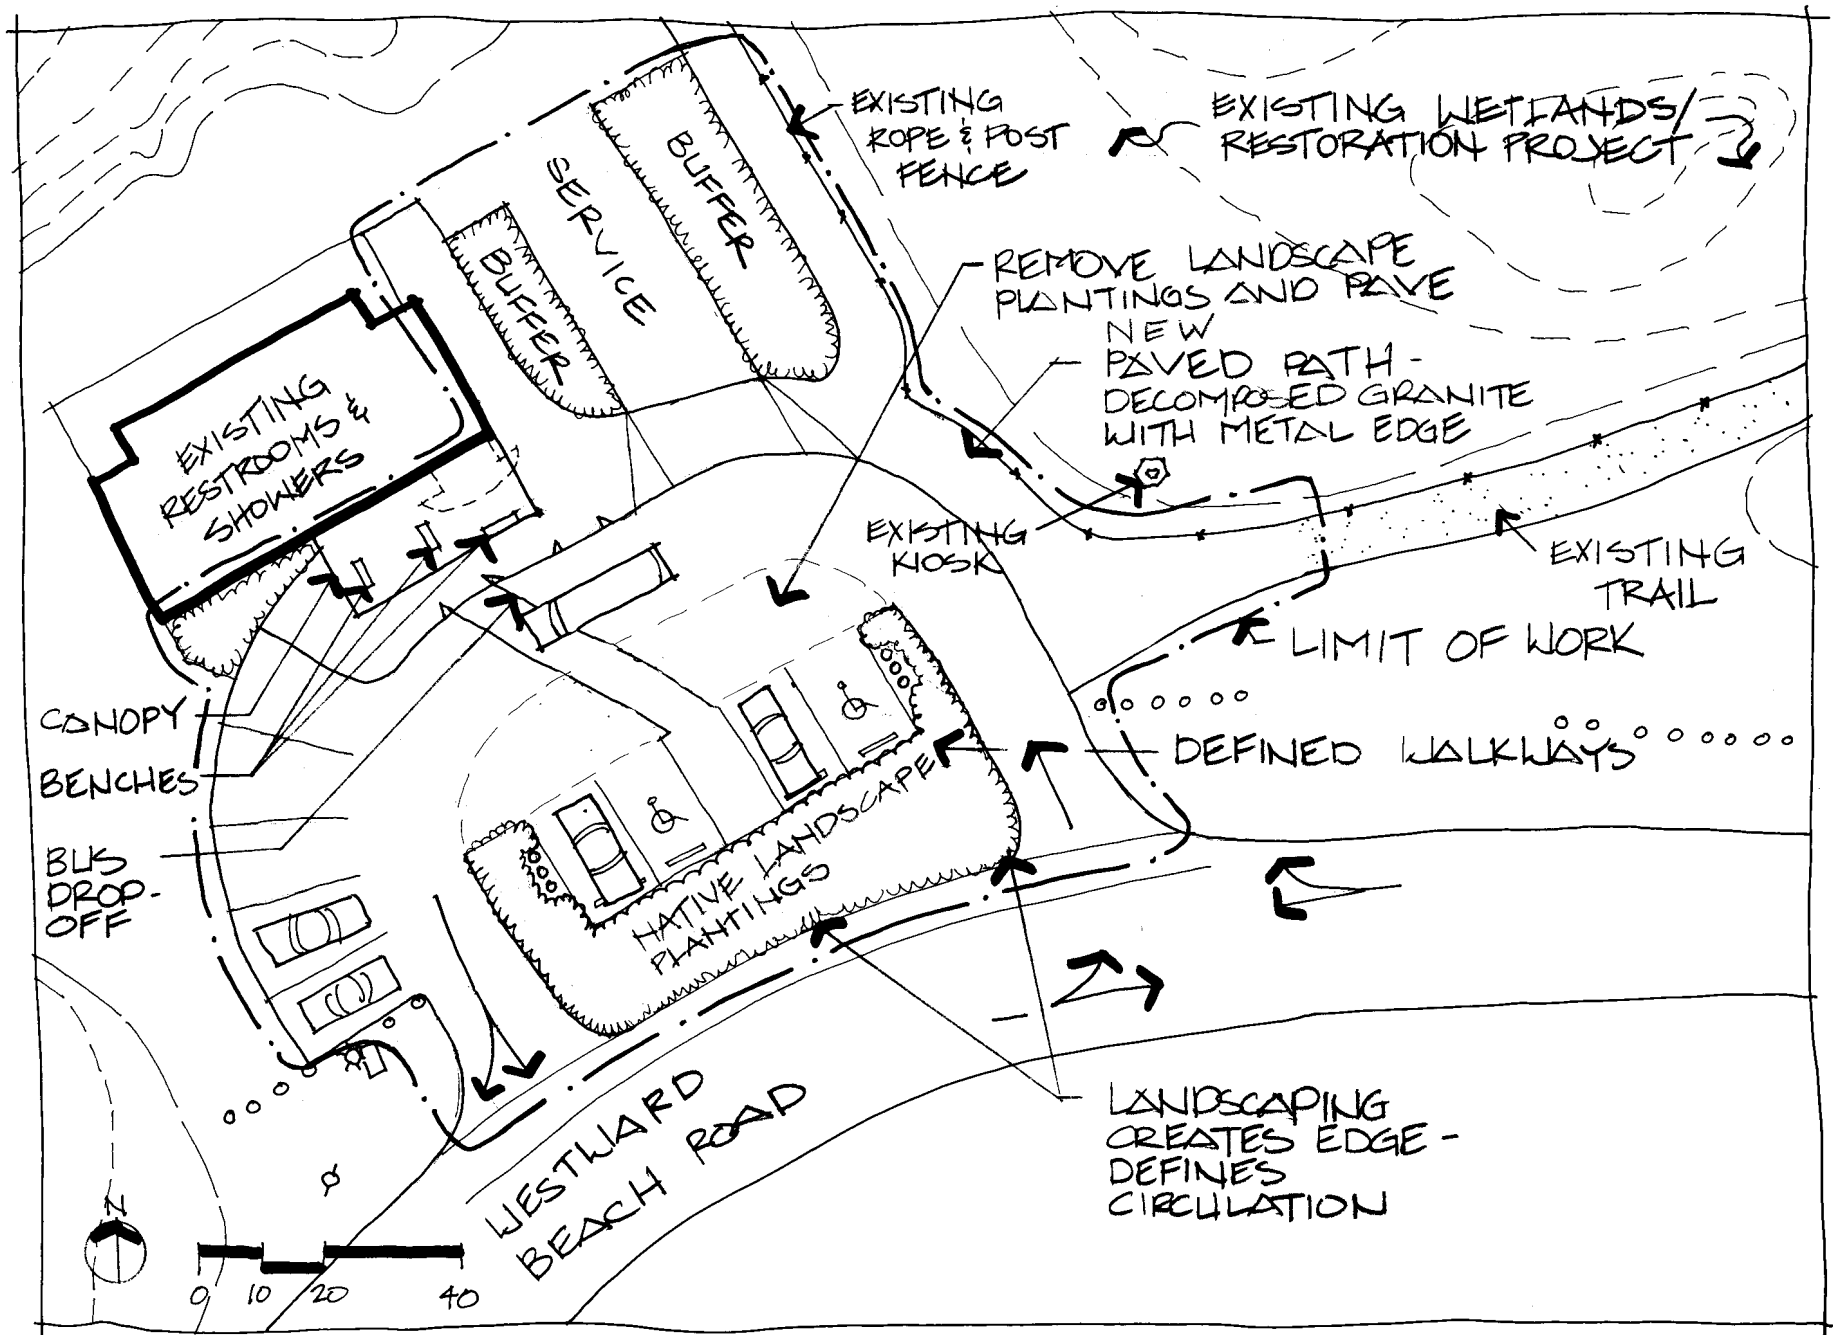 EXISTING
ROPE & POST
FENCE
EXISTING WETLANDS/
RESTORATION PROJECT
BUFFER
SERVICE
BUFFER
REMOVE LANDSCAPE
PLANTINGS AND PAVE
NEW
PAVED PATH -
DECOMPOSED GRANITE
WITH METAL EDGE
EXISTING
RESTROOMS &
SHOWERS
EXISTING
KIOSK
EXISTING
TRAIL
LIMIT OF WORK
CANOPY
BENCHES
BUS
DROP-
OFF
DEFINED WALKWAYS
NATIVE LANDSCAPE
PLANTINGS
WESTWARD
BEACH ROAD
LANDSCAPING
CREATES EDGE -
DEFINES
CIRCULATION
N
0 10 20 40